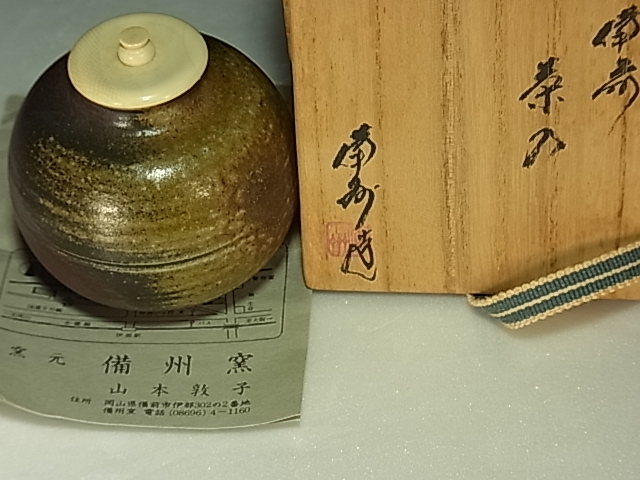 備前
茶入
備州造
窯元 備州窯
山本敦子
住所 岡山県備前市伊部302の2番地
備州窯 電話(08696)4-1160